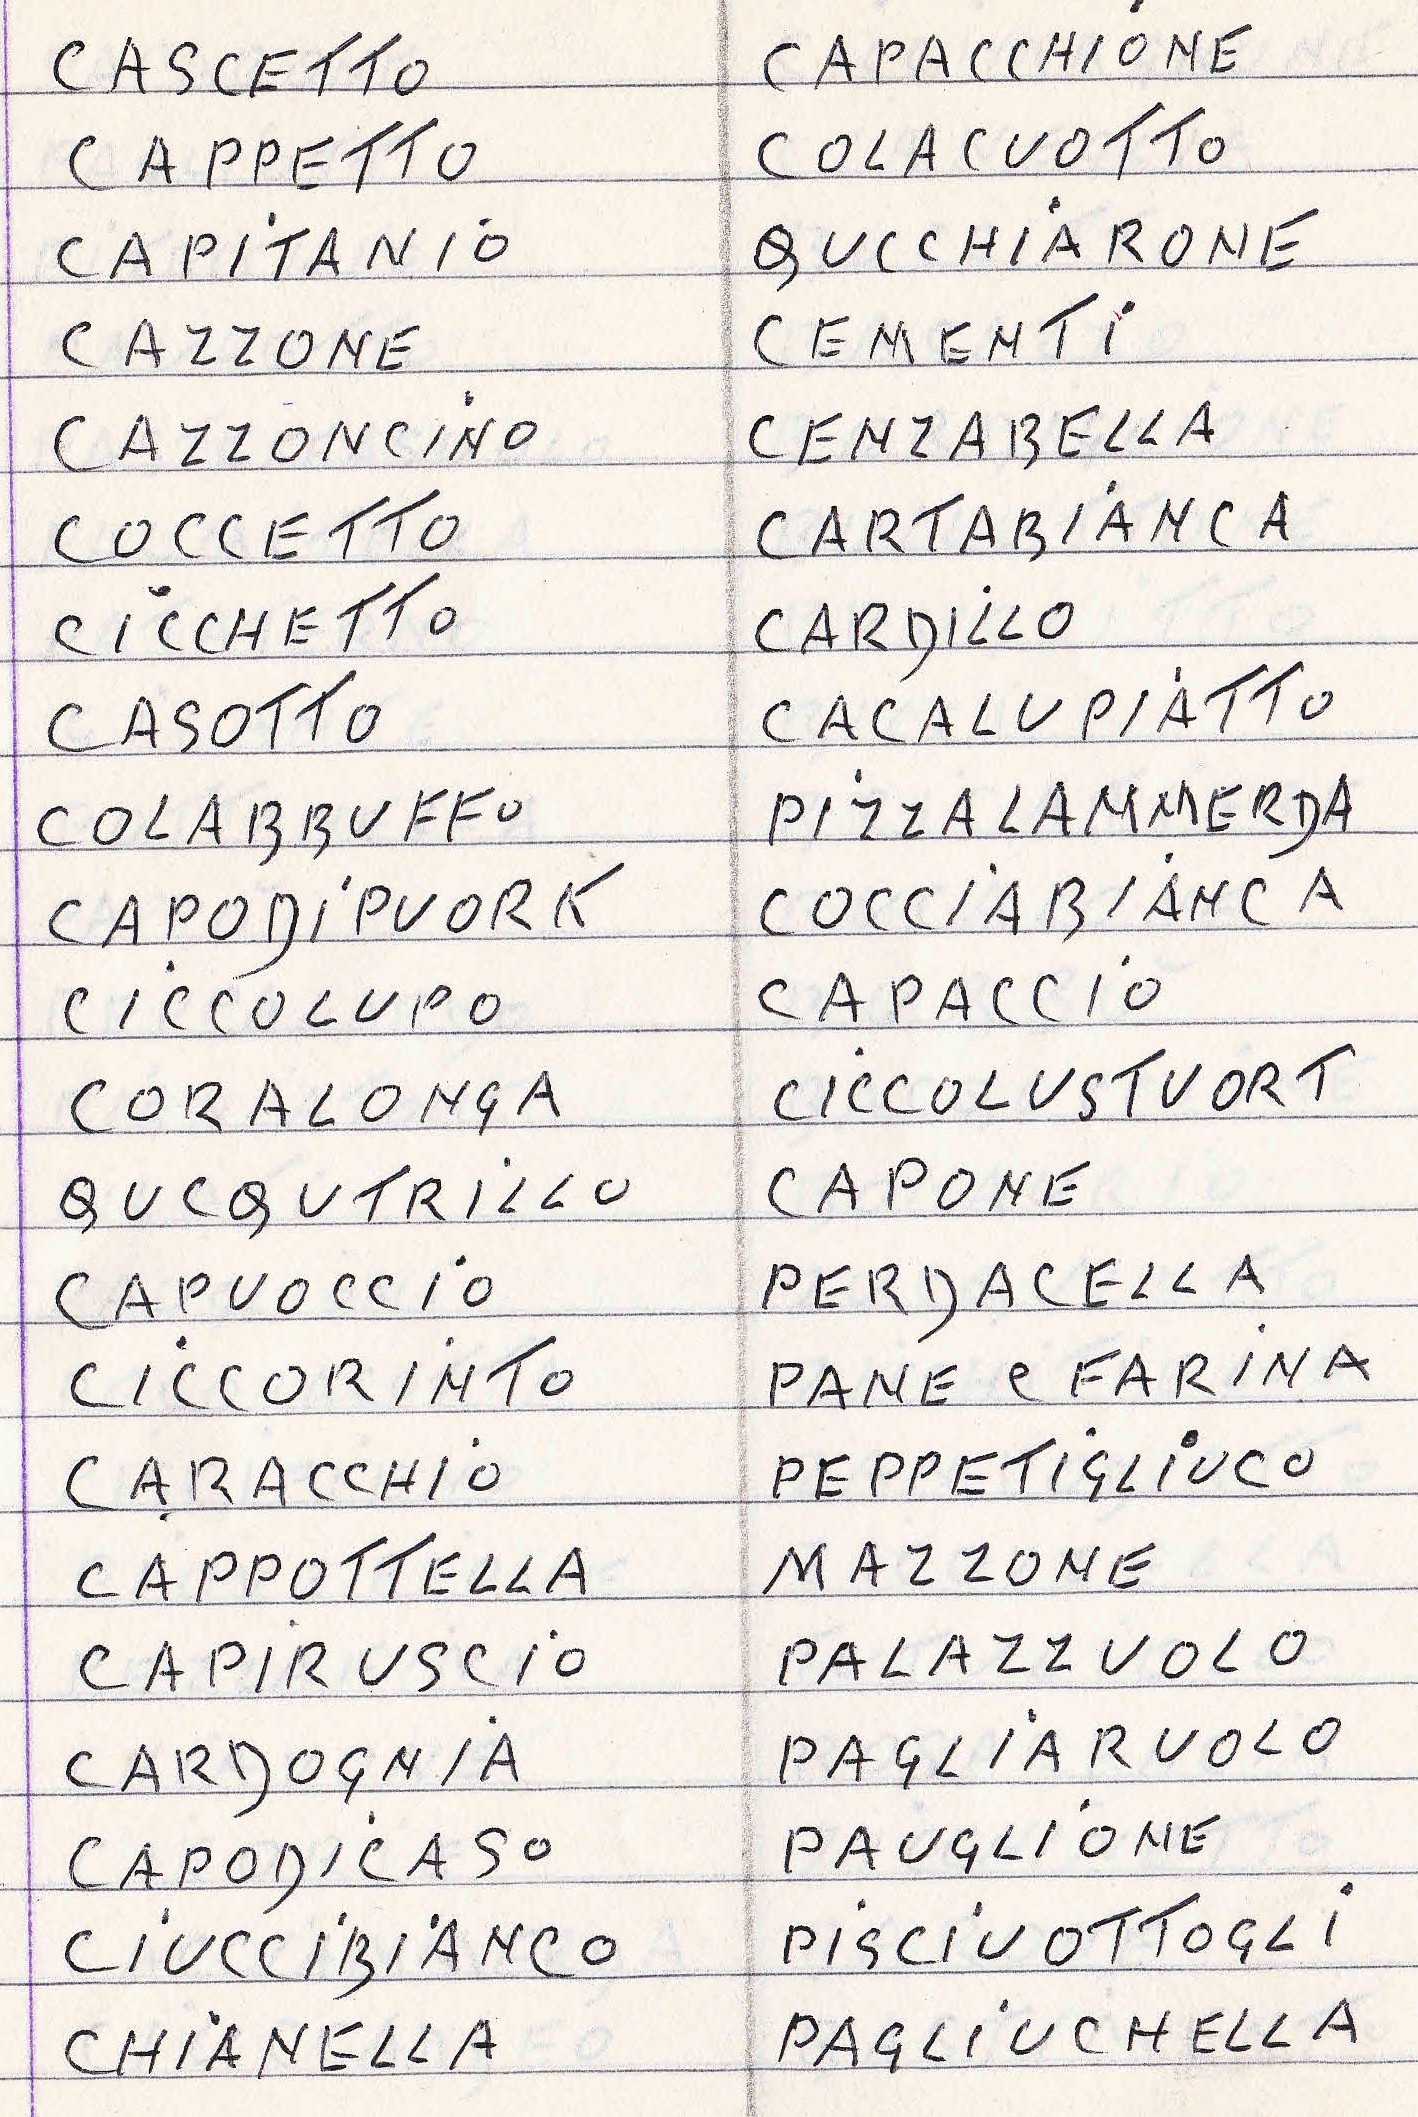 CASCETTO
CAPPETTO
CAPITANIO
CAZZONE
CAZZONCINO
COCCETTO
CICCHETTO
CASOTTO
COLABBUFFO
CAPODIPUORK
CICCOLUPO
CORALONGA
QUCQUTRILLO
CAPUOCCIO
CICCORINTO
CARACCHIO
CAPPOTTELLA
CAPIRUSCIO
CARDOGNIA
CAPODICASO
CIUCCIBIANCO
CHIANELLA
CAPACCHIONE
COLACUOTTO
QUCCHIARONE
CEMENTI
CENZABELLA
CARTABIANCA
CARDILLO
CACALUPIATTO
PIZZALAMMERDA
COCCIABIANCA
CAPACCIO
CICCOLUSTUORT
CAPONE
PERDACELLA
PANE e FARINA
PEPPETIGLIUCO
MAZZONE
PALAZZUOLO
PAGLIARUOLO
PAUGLIONE
PISCIUOTTOGLI
PAGLIUCHELLA